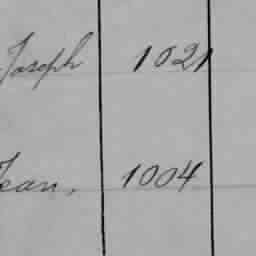 Joseph 1021
Jean, 1004